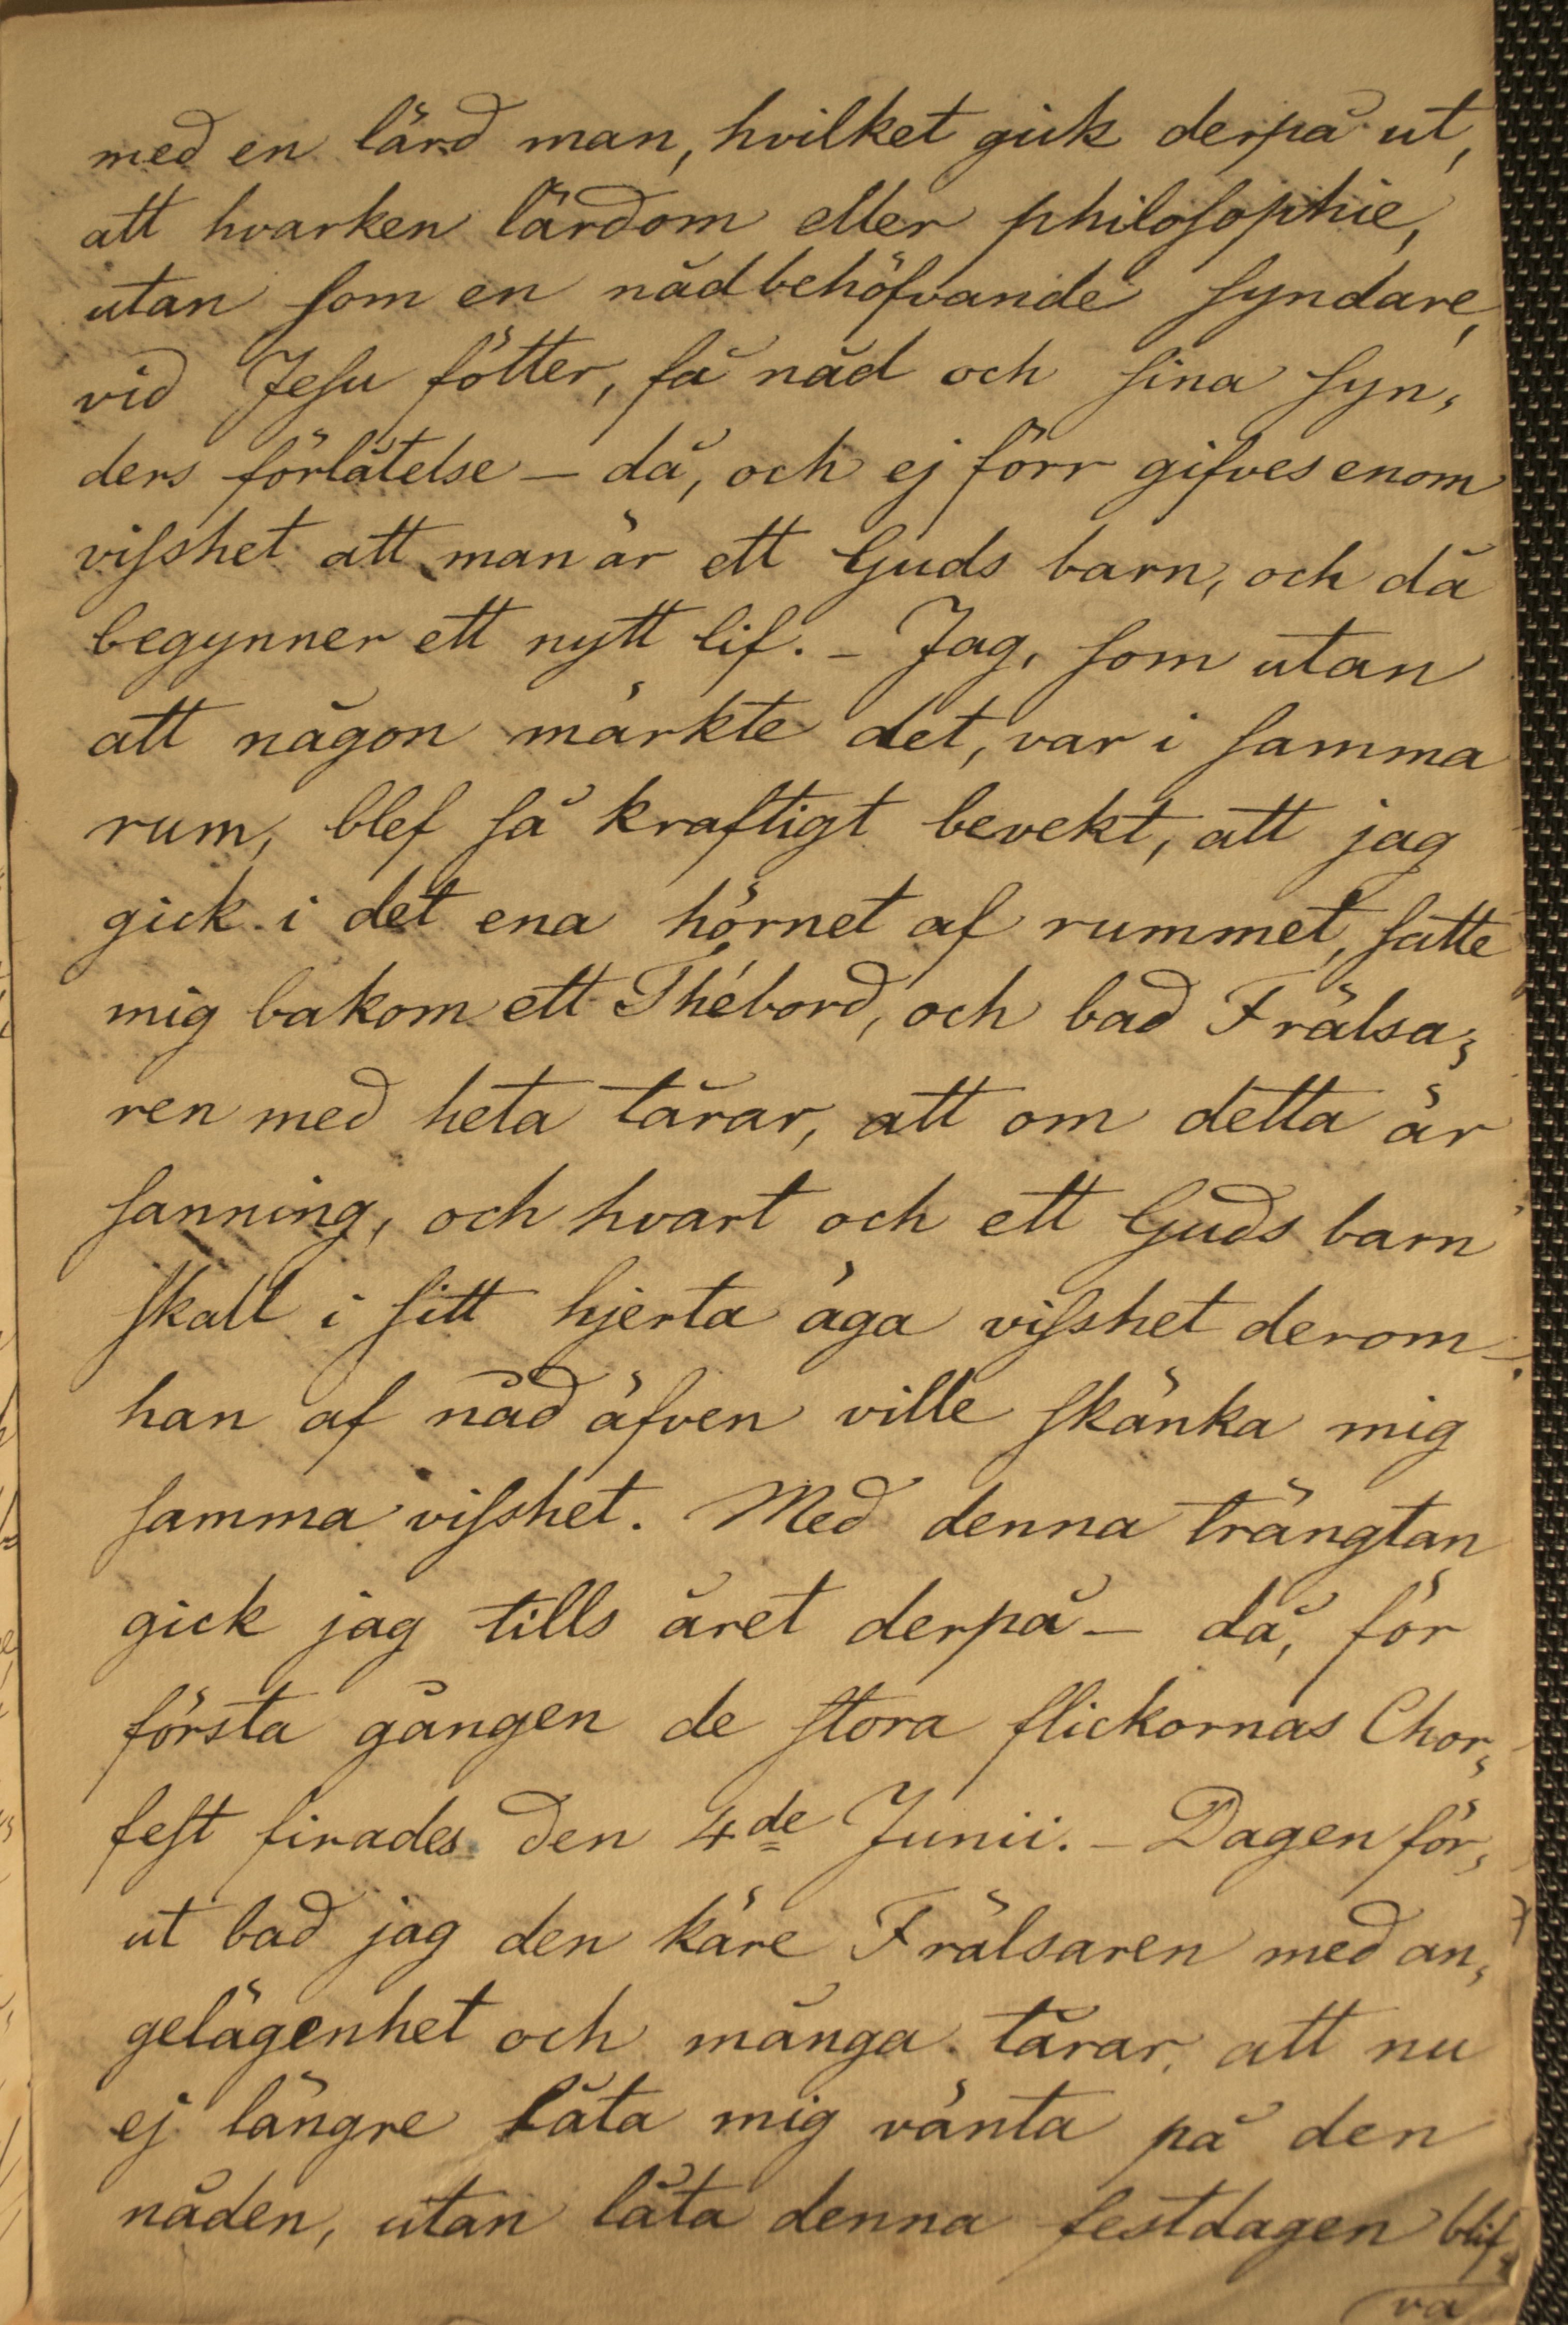 med en lärd man, hvilket gick derpå ut,
att hvarken lärdom eller philosophie,
utan som en nådbehöfvande syndare,
vid Jesu fötter, få nåd och sina syn,
ders förlåtelse – då, och ej förr gifves enom
visshet att man är ett Guds barn, och då
begynner ett nytt lif. – Jag, som utan
att någon märkte det, var i samma
rum, blef så kraftigt bevekt, att jag
gick i det ena hörnet af rummet, satte
mig bakom ett Thébord, och bad Frälsa,
ren med heta tårar, att om detta är
sanning, och hvart och ett Guds barn
skall i sitt hjerta äga visshet derom –
han af nåd äfven ville skänka mig
samma visshet. Med denna trängtan
gick jag tills året derpå – då, för
första gången de stora flickornas Chor,
fest firades den 4de Junii. – Dagen för,
ut bad jag den käre Frälsaren med an,
gelägenhet och många tårar, att nu
ej längre låta mig vänta på den
nåden, utan låta denna festdagen blif,
va